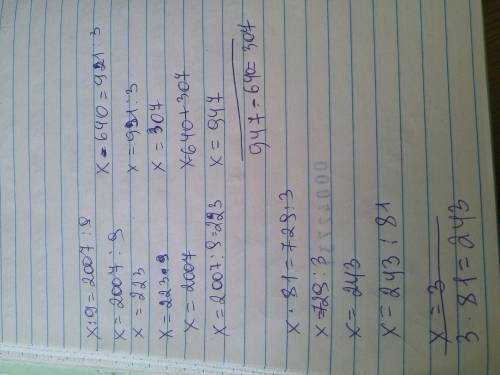 x:9=2007:9
x=2007:9
x=223
x=223•9
x=2007
x=2007:9=223
x-640=921:3
x=921:3
x=307
x=640+307
x=947
947-640=307
x·81=729:3
x=729:3
x=243
x=243:81
x=3
3·81=243